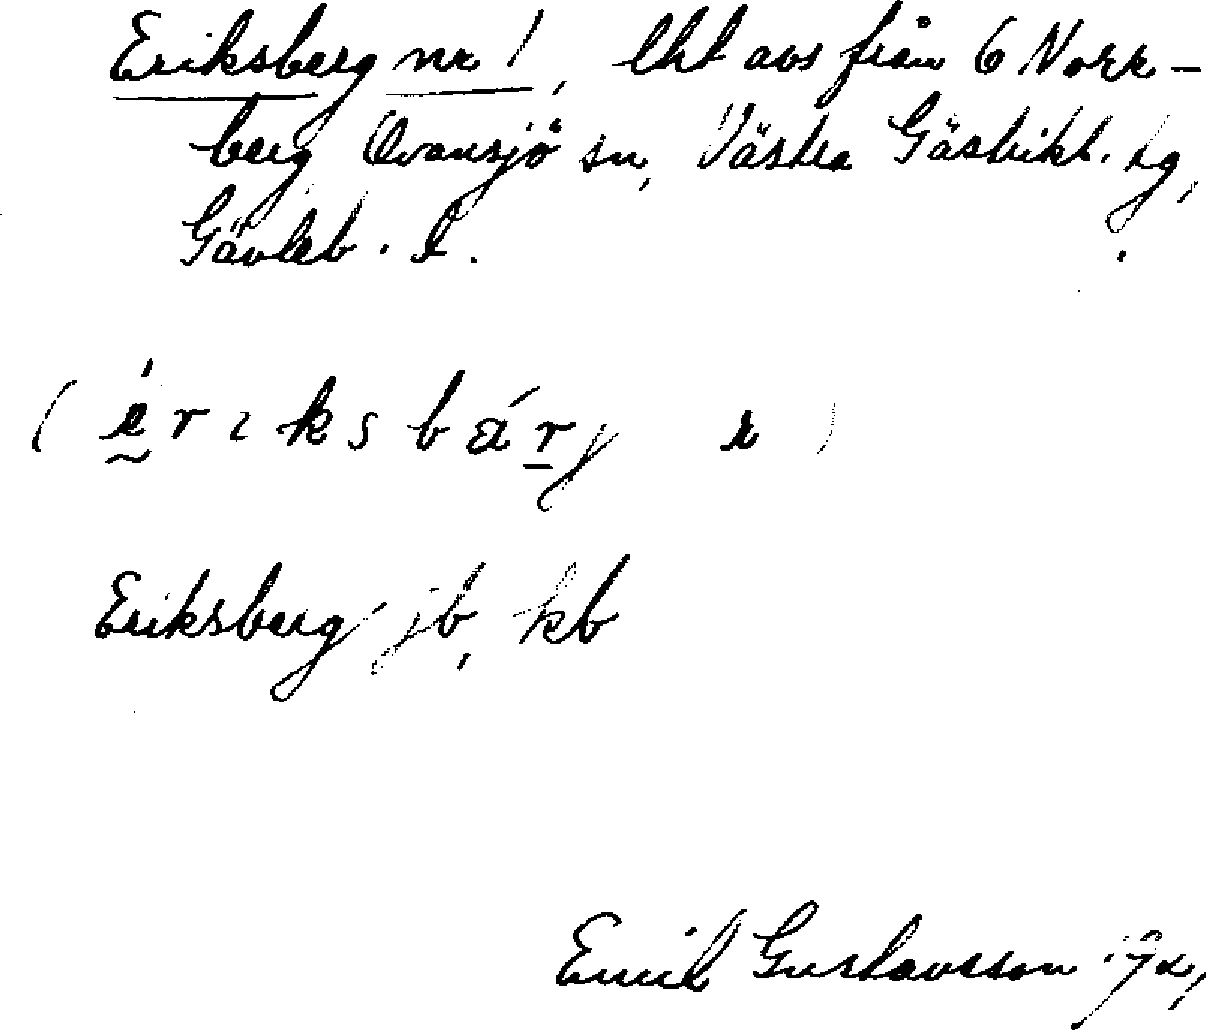 Eriksberg nr 1, lht avs från 6 Norr-
berg Ovansjö sn, Västra Gästrikl. tg,
Gävleb. l.
(é r ɪ k s b ä́ r j
Eriksberg jb, kb
Emil Gustavsson